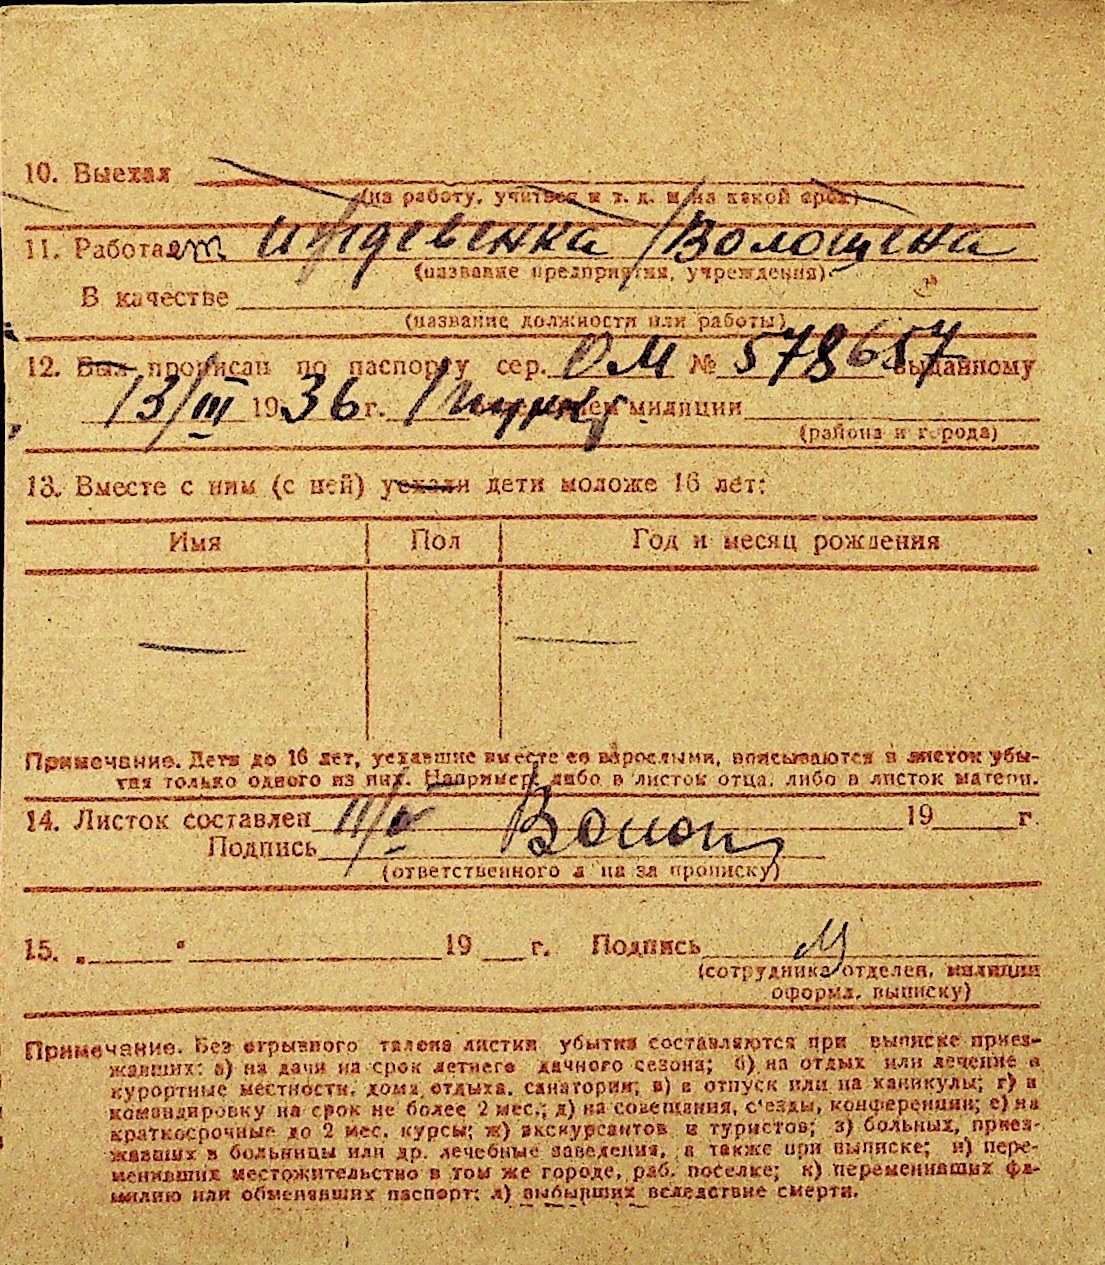 10. Выехал
(на работу, учиться и т. д. и на какой срок)
11. Работает иждевенка /Волощена
(название предприятия, учреждения)
В качестве
(название должности или работы)
12. Был прописан по паспорту сер. ОМ № 578657 выданному
13/III 1936 г. милиции
(района и города)
13. Вместе с ним (с ней) уехали дети моложе 16 лет:
Имя Пол Год и месяц рождения
— —
Примечание. Дети до 16 лет, уехавшие вместе со взрослыми, вписываются в листок убы-
тия только одного из них. Например, либо в листок отца, либо в листок матери.
14. Листок составлен 19 г.
Подпись
(ответственного лица за прописку)
15. „ “ 19 г. Подпись
(сотрудника отделен. милиции
оформл. выписку)
Примечание. Без отрывного талона листки убытия составляются при выписке приез-
жавших: а) на дачи на срок летнего дачного сезона; б) на отдых или лечение в
курортные местности, дома отдыха, санатории; в) в отпуск или на каникулы; г) в
командировку на срок не более 2 мес.; д) на совещания, с'езды, конференции; е) на
краткосрочные до 2 мес. курсы; ж) экскурсантов и туристов; з) больных, приез-
жавших в больницы или др. лечебные заведения, а также при выписке; и) пере-
менивших местожительство в том же городе, раб. поселке; к) переменивших фа-
милию или обменявших паспорт; л) выбывших вследствие смерти.